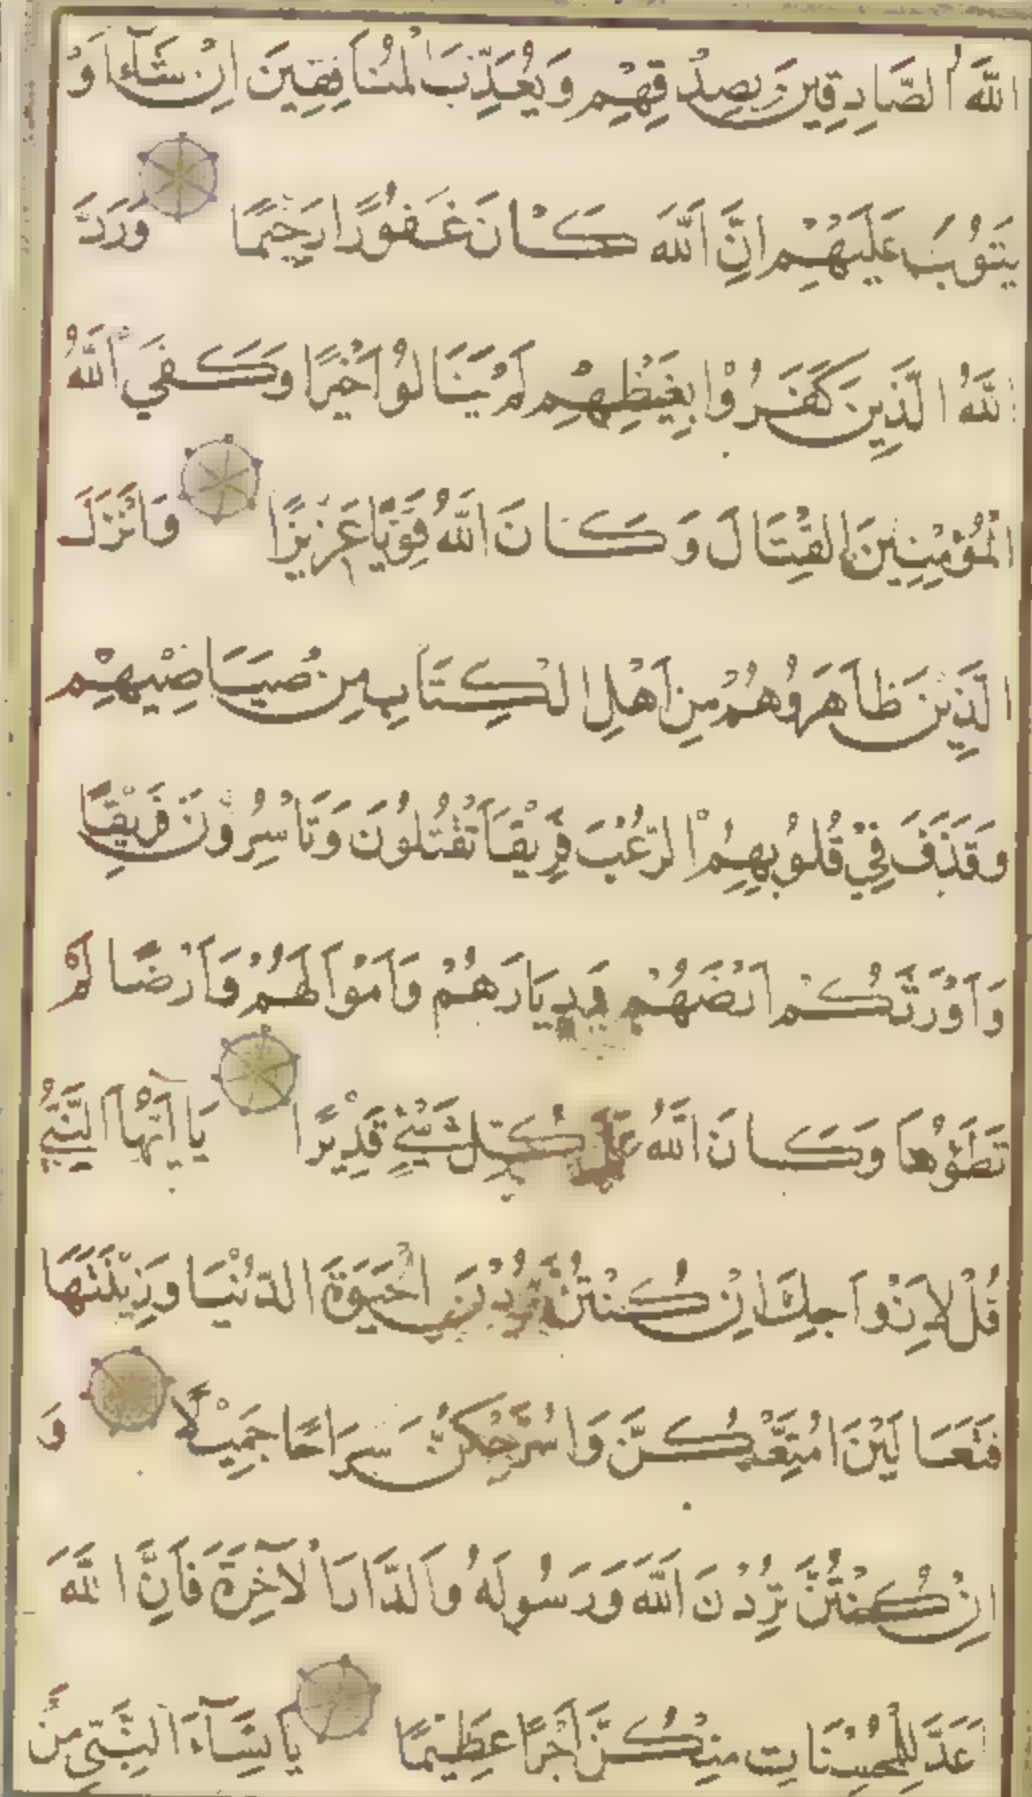 اللَّهُ الصَّادِقِينَ بِصِدْقِهِمْ وَيُعَذِّبَ الْمُنَافِقِينَ اِنْ شَآءَ اَوْ
يَتُوبَ عَلَيْهِمْ اِنَّ اللَّهَ كَانَ غَفُورًا رَحِيمًا وَرَدَّ
اللَّهُ الَّذِينَ كَفَرُوْا بِغَيْظِهِمْ لَمْ يَنَالُوْا خَيْرًا وَكَفَى اللَّهُ
الْمُؤْمِنِينَ الْقِتَالَ وَكَانَ اللَّهُ قَوِيًّا عَزِيزًا وَاَنْزَلَ
الَّذِينَ ظَاهَرُوهُمْ مِنْ اَهْلِ الْكِتَابِ مِنْ صَيَاصِيهِمْ
وَقَذَفَ فِيْ قُلُوبِهِمُ الرُّعْبَ فَرِيْقًا تَقْتُلُونَ وَتَاْسِرُوْنَ فَرِيْقًا
وَاَوْرَثَكُمْ اَرْضَهُمْ وَدِيَارَهُمْ وَاَمْوَالَهُمْ وَاَرْضًا لَمْ
تَطَؤُهَا وَكَانَ اللَّهُ عَلَى كُلِّ شَيْئٍ قَدِيْرًا يَا اَيُّهَا النَّبِيُّ
قُلْ لِاَزْوَاجِكَ اِنْ كُنْتُنَّ تُرِدْنَ الْحَيَوةَ الدُّنْيَا وَزِيْنَتَهَا
فَتَعَالَيْنَ اُمَتِّعْكُنَّ وَاُسَرِّحْكُنَّ سَرَاحًا جَمِيْلًا وَ
اِنْ كُنْتُنَّ تُرِدْنَ اللَّهَ وَرَسُولَهُ وَالدَّارَ الْآخِرَةَ فَاِنَّ اللَّهَ
اَعَدَّ لِلْمُحْسِنَاتِ مِنْكُنَّ اَجْرًا عَظِيْمًا يَا نِسَآءَ النَّبِيِّ مَنْ